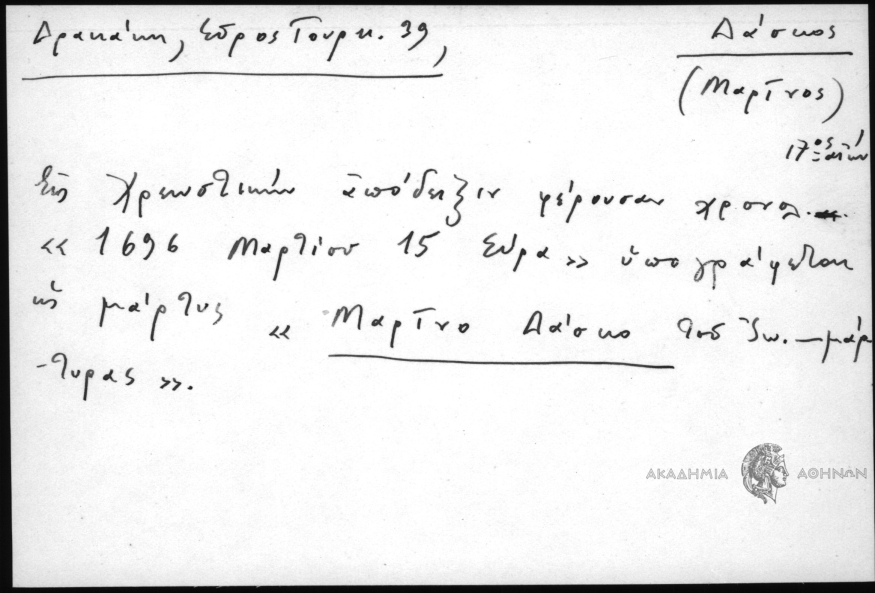 Δρακάκη, Σῦρος Τουρκ. 39,
Δάσκος
(Μαρῖνος)
17ος αἰών
Εἰς χρεωστικὴν ἀπόδειξιν φέρουσαν χρονολ.
« 1696 Μαρτίου 15 Σύρα » ὑπογράφεται
ὡς μάρτυς « Μαρῖνο Δάσκο τοῦ Ἰω. – μάρ
-τυρας ».
ΑΚΑΔΗΜΙΑ ΑΘΗΝΩΝ